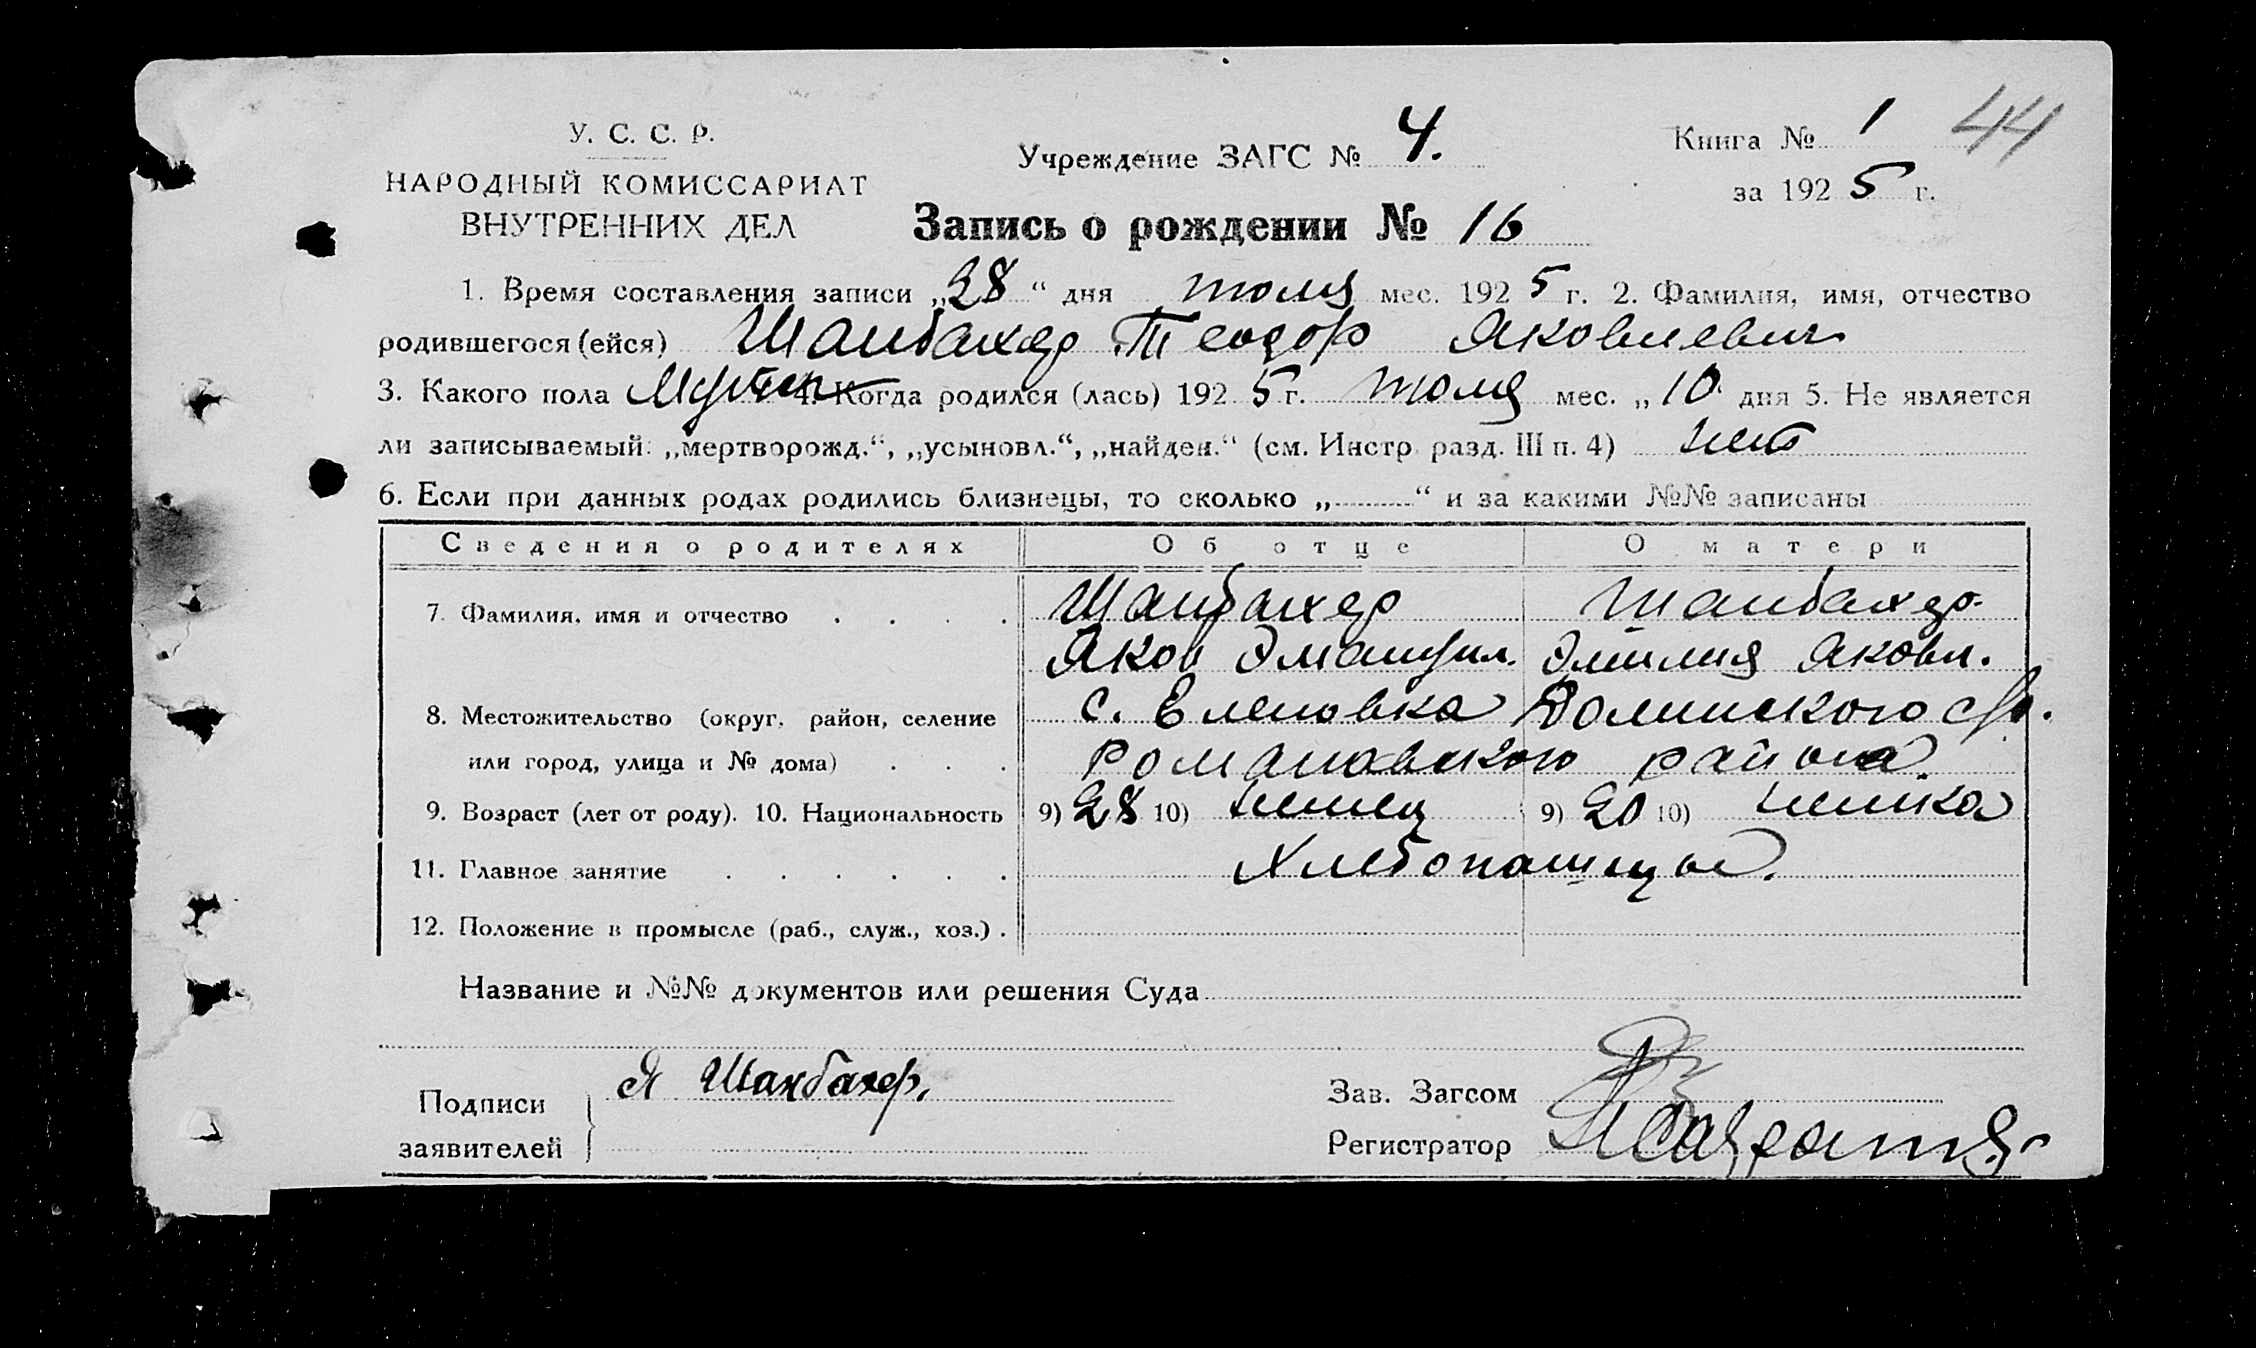 У. С. С. Р.
НАРОДНЫЙ КОМИССАРИАТ
ВНУТРЕННИХ ДЕЛ
Учреждение ЗАГС № 4.
Книга № 1 44
за 1925 г.
Запись о рождении № 16
1. Время составления записи „28“ дня июля мес. 1925 г. 2. Фамилия, имя, отчество
родившегося (ейся) Шанбахер Теодор Яковлевич
3. Какого пола Мужск 4. Когда родился (лась) 1925 г. июля мес. „10 дня 5. Не является
ли записываемый: „мертворожд.“, „усыновл.“, „найден.“ (см. Инстр. разд. III п. 4) нет
6. Если при данных родах родились близнецы, то сколько „..........“ и за какими №№ записаны
Сведения о родителях Об отце О матери
7. Фамилия, имя и отчество . . . . Шанбахер Шанбахер
Яков Эмануил. Эмилия Яковл.
8. Местожительство (округ, район, селение с. Еленовка Долинского с/с.
или город, улица и № дома) . . . Романовского района
9. Возраст (лет от роду). 10. Национальность 9) 28 10) немец 9) 20 10) немка
11. Главное занятие . . . . . . Хлебопашцы.
12. Положение в промысле (раб., служ., хоз.) .
Название и №№ документов или решения Суда
Подписи
заявителей
Я Шанбахер.
Зав. Загсом
Регистратор